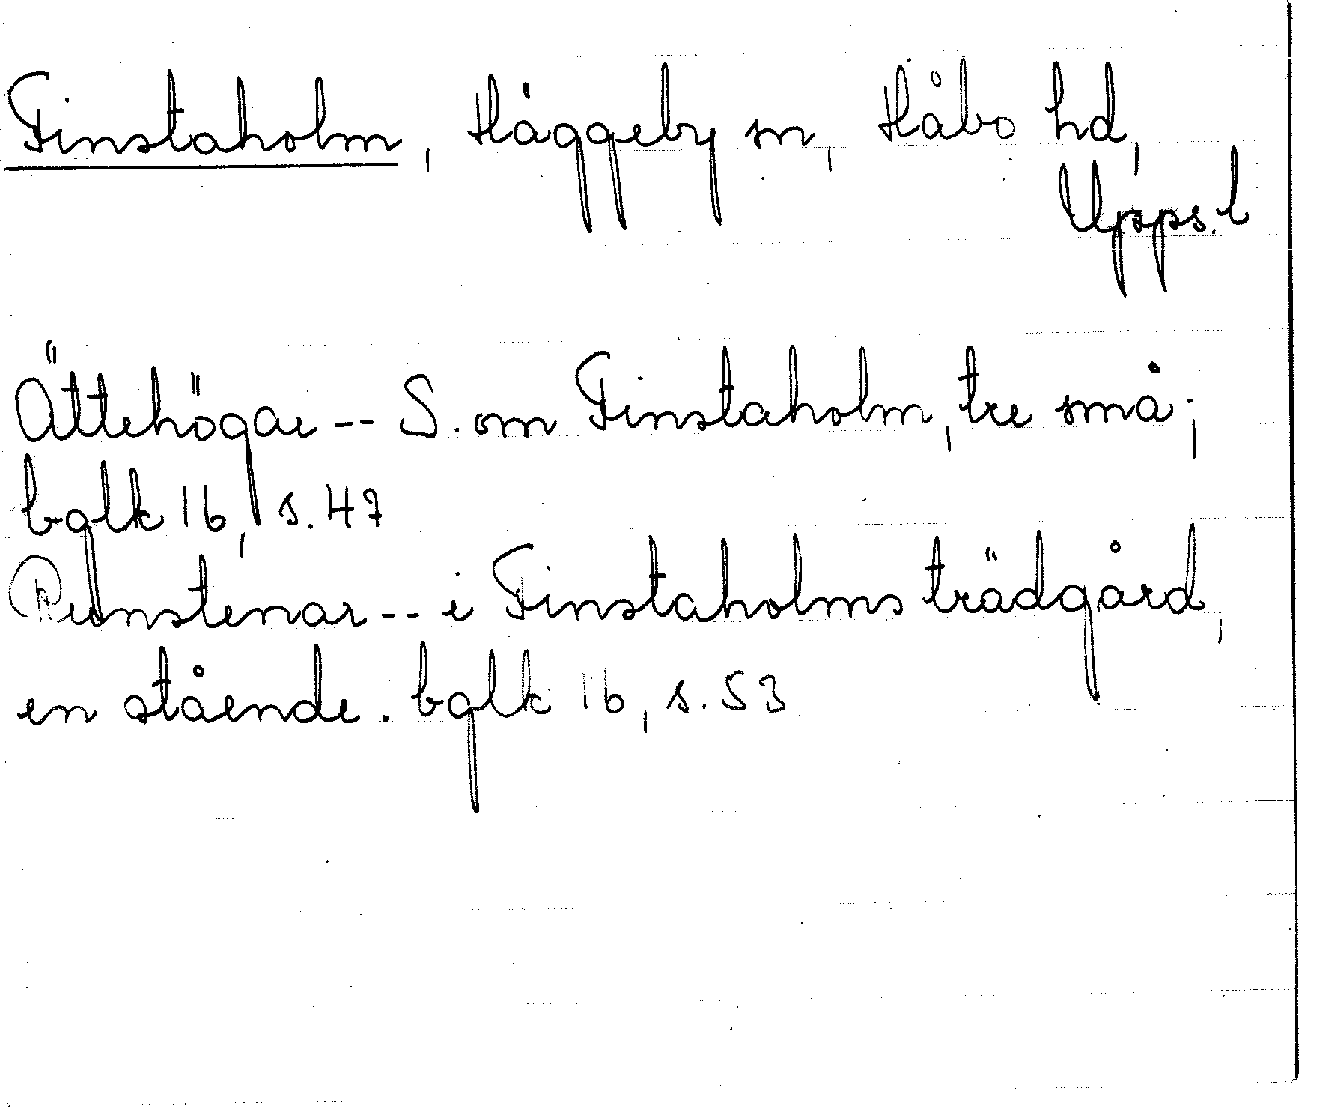 Finstaholm, Häggeby sn, Håbo hd,
Upps. l
Ättehögar -- S. om Finstaholm, tre små;
bglk 16, s. 47
Runstenar -- i Finstaholms trädgård,
en stående. bglk 16, s. 53